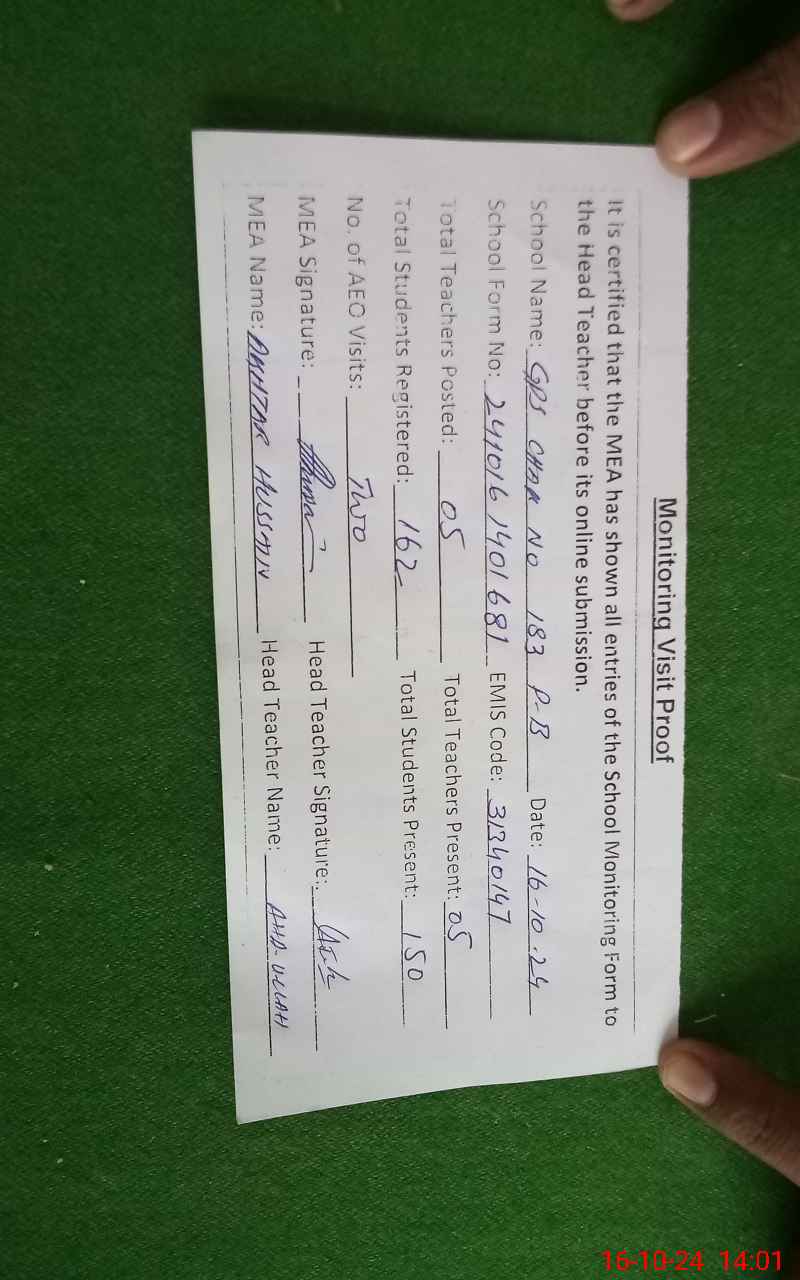 Monitoring Visit Proof
It is certified that the MEA has shown all entries of the School Monitoring Form to
the Head Teacher before its online submission.
School Name: GPS CHAK NO 183 P-B Date: 16-10-24
School Form No: 241016 1401681 EMIS Code: 31340147
Total Teachers Posted: 05 Total Teachers Present: 05
Total Students Registered: 162 Total Students Present: 150
No. of AEO Visits: TWO
MEA Signature: Head Teacher Signature:
MEA Name: AKHTAR HUSSAIN Head Teacher Name:
16-10-24 14:01